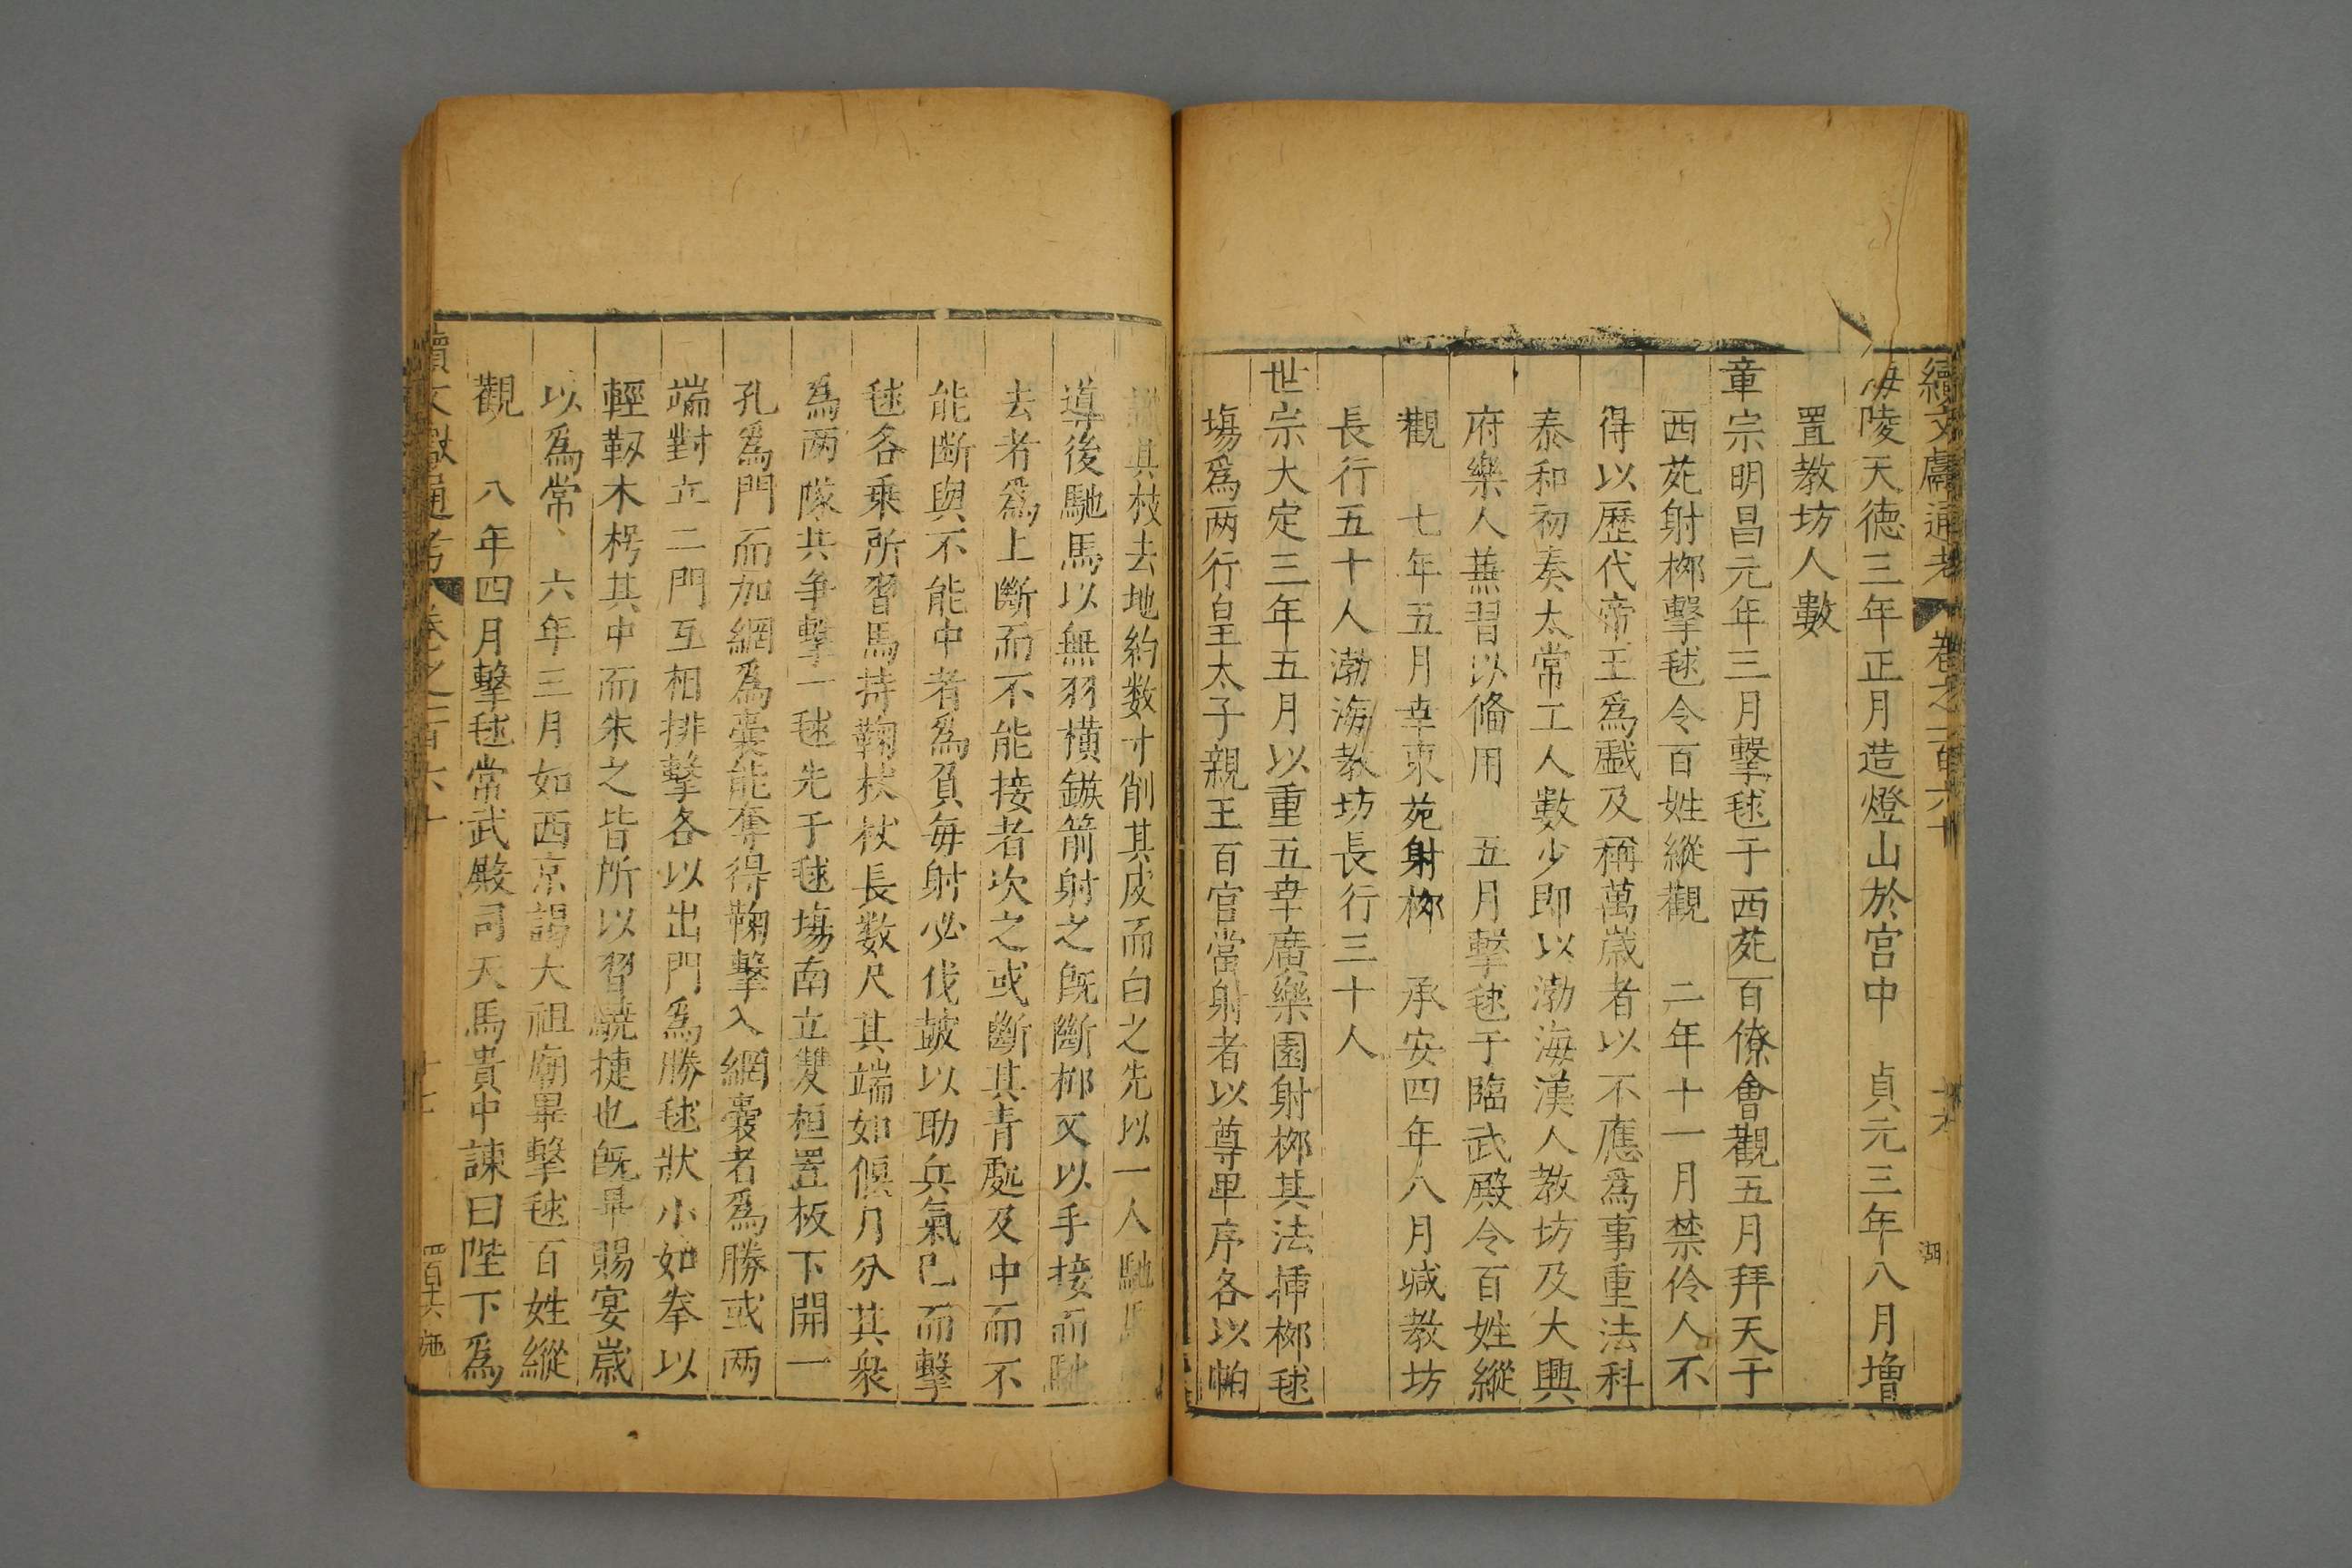 續文獻通考 卷之一百六十
海陵天德三年正月造燈山於宮中 貞元三年八月增
置教坊人數
章宗明昌元年三月擊毬于西苑百僚會觀五月拜天于
西苑射柳擊毬令百姓縱觀 二年十一月禁伶人不
得以歷代帝王爲戲及稱萬歲者以不應爲事重法科
泰和初奏太常工人數少即以渤海漢人教坊及大興
府樂人兼習以備用 五月擊毬于臨武殿令百姓縱
觀 七年五月幸東苑射柳 承安四年八月減教坊
長行五十人渤海教坊長行三十人
世宗大定三年五月以重五幸廣樂園射柳其法揷柳毬
塲爲两行皇太子親王百官當射者以尊卑序各以帕
其枝去地約数寸削其皮而白之先以一人馳馬
導後馳馬以無羽橫鏃箭射之旣斷柳又以手接而馳
去者爲上斷而不能接者次之或斷其青處及中而不
能斷與不能中者爲負每射必伐鼓以助兵氣已而擊
毬各乘所習馬持鞠杖杖長数尺其端如偃月分其衆
爲两隊共争擊一毬先于毬塲南立雙桓置板下開一
孔爲門而加網爲囊能奪得鞠擊入網囊者爲勝或两
端對立二門互相排擊各以出門爲勝毬狀小如拳以
輕靱木枵其中而朱之皆所以習驍捷也旣畢賜宴歲
以爲常、六年三月如西京謁大祖廟畢擊毬百姓縱
觀 八年四月擊毬常武殿司天馬貴中諫曰陛下爲
續文獻通考 卷之一百六十